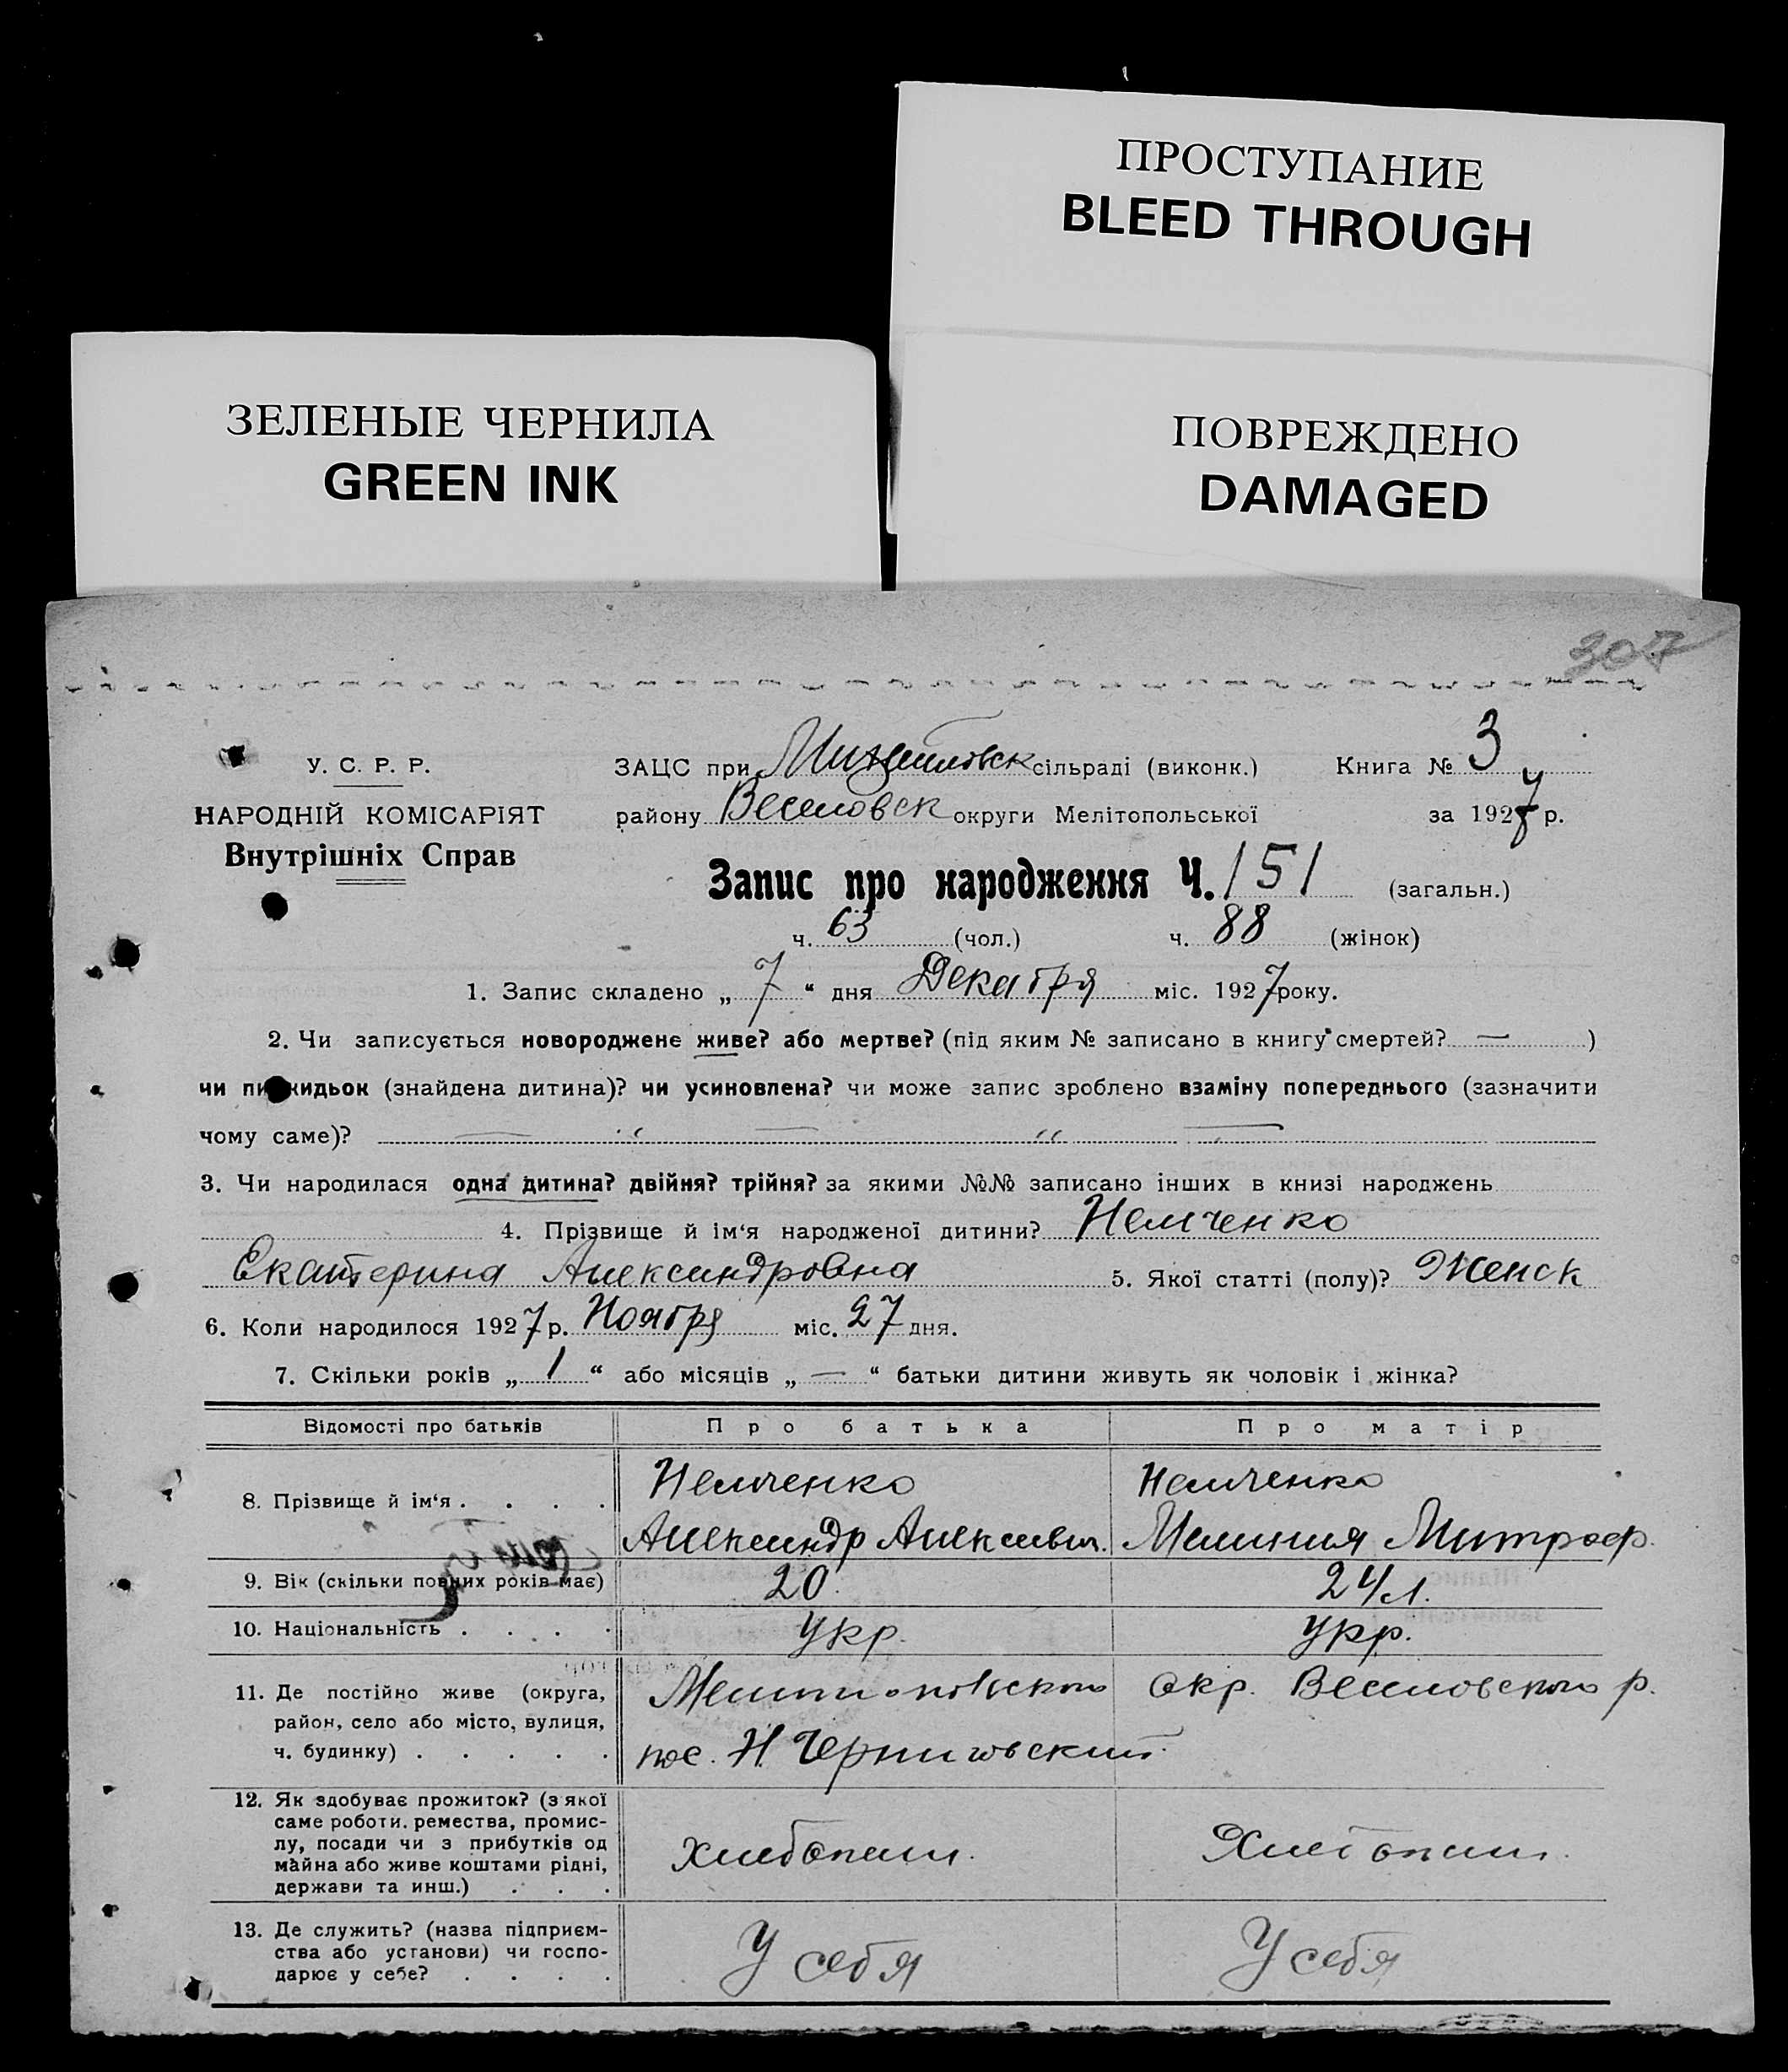 ПРОСТУПАНИЕ
BLEED THROUGH
ЗЕЛЕНЫЕ ЧЕРНИЛА
GREEN INK
ПОВРЕЖДЕНО
DAMAGED
307
У. С. Р. Р.
НАРОДНІЙ КОМІСАРІЯТ
Внутрішніх Справ
ЗАЦС при Михайловск сільраді (виконк.) Книга № 3
району Веселовск округи Мелітопольської за 1927 р.
Запис про народження Ч. 151 (загальн.)
ч. 63 (чол.) ч. 88 (жінок)
1. Запис складено „ 7 “ дня Декабря міс. 1927 року.
2. Чи записується новороджене живе? або мертве? (під яким № записано в книгу смертей? — )
чи підкидьок (знайдена дитина)? чи усиновлена? чи може запис зроблено взаміну попереднього (зазначити
чому саме)? — " — " —
3. Чи народилася одна дитина? двійня? трійня? за якими №№ записано інших в книзі народжень
4. Прізвище й ім‘я народженої дитини? Немченко
Екатерина Александровна 5. Якої статті (полу)? Женск
6. Коли народилося 1927 р. Ноября міс. 27 дня.
7. Скільки років „ 1 “ або місяців „ — “ батьки дитини живуть як чоловік і жінка?
Відомості про батьків Про батька Про матір
8. Прізвище й ім‘я . . . . Немченко Немченко
Александр Алексеевич. Мелания Митроф.
9. Вік (скільки повних років має) 20. 24 л.
10. Національність . . . . Укр. Укр.
11. Де постійно живе (округа, Мелитопольского Окр. Веселовского р.
район, село або місто, вулиця,
ч. будинку) . . . . . пос. Н. Черниговский.
12. Як здобуває прожиток? (з якої
саме роботи, ремества, промис-
лу, посади чи з прибутків од
майна або живе коштами рідні,
держави та инш.) . . . Хлебопаш. Хлебопаш.
13. Де служить? (назва підприєм-
ства або установи) чи госпо-
дарює у себе? . . . . У себя У себя